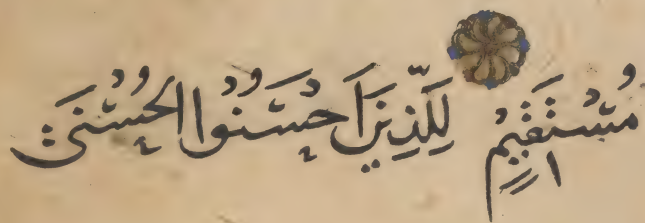 مُسْتَقِيمٍ لِلَّذِينَ أَحْسَنُوا الْحُسْنَىٰ